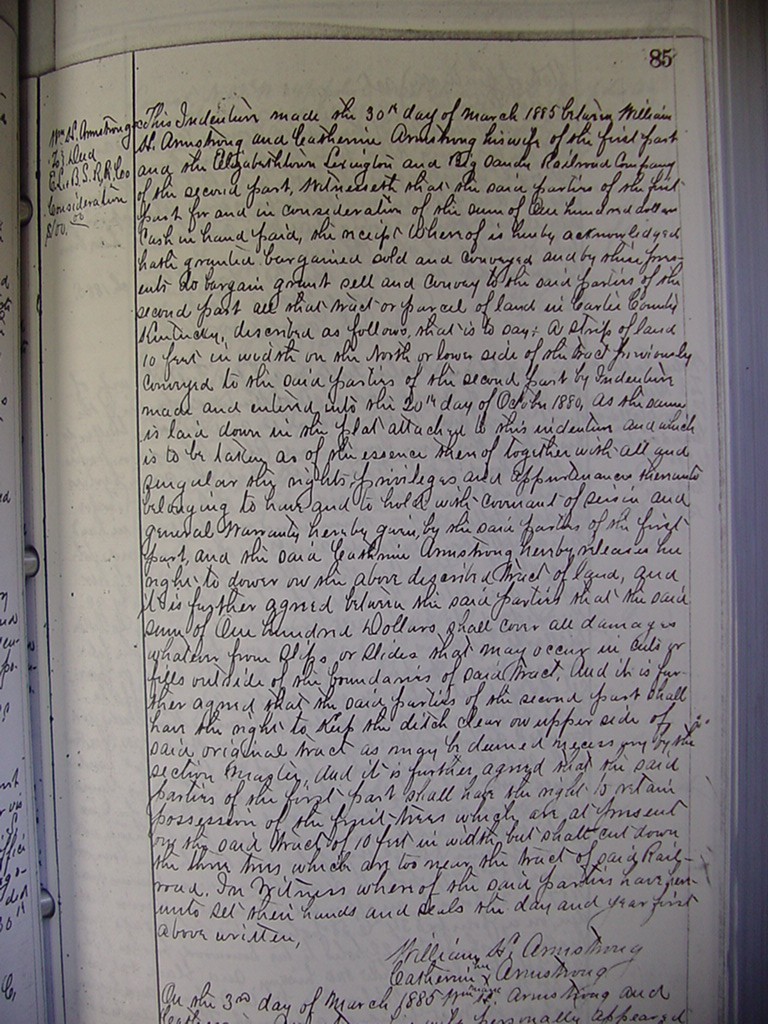 85
Wm H. Armstrong
To } Deed
E. L. & B. S. R. R. Co
Consideration
$100.00
This Indenture made the 30th day of March 1885 between William
H. Armstrong and Catherine Armstrong his wife of the first part
and the Elizabethtown Lexington and Big Sandy Railroad Company
of the second part, Witnesseth that the said parties of the first
part for and in consideration of the sum of One hundred dollars
Cash in hand paid, the receipt whereof is hereby acknowledged
hath granted bargained sold and conveyed and by these pres-
ents do bargain grant sell and convey to the said parties of the
second part all that tract or parcel of land in Carter County
Kentucky, described as follows, that is to say: A strip of land
10 feet in width on the North or lower side of the tract previously
conveyed to the said parties of the second part by Indenture
made and entered into the 20th day of October 1880, as the same
is laid down in the plat attached to this indenture and which
is to be taken as of the essence thereof together with all and
singular the rights, privileges and appurtenances thereunto
belonging to have and to hold with covenant of seisin and
general Warranty hereby given, by the said parties of the first
part, and the said Catherine Armstrong hereby releases her
right to dower on the above described tract of land, and
it is further agreed between the said parties that the said
sum of One hundred Dollars shall cover all damages
whatever from slips or slides that may occur in cuts or
fills outside of the boundaries of said tract, And it is fur-
ther agreed that the said parties of the second part shall
have the right to keep the ditch clear on upper side of
said original tract as may be deemed necessary by the
section Master, And it is further agreed that the said
parties of the first part shall have the right to retain
possession of the fruit trees which are at present
on the said tract of 10 feet in width but shall cut down
the three trees which are too near the tract of said Rail-
road. In Witness whereof the said parties have here-
unto set their hands and seals the day and year first
above written,
William H. Armstrong
Catherine her x mark Armstrong
On the 3rd day of March 1885 Wm H. Armstrong and
personally appeared